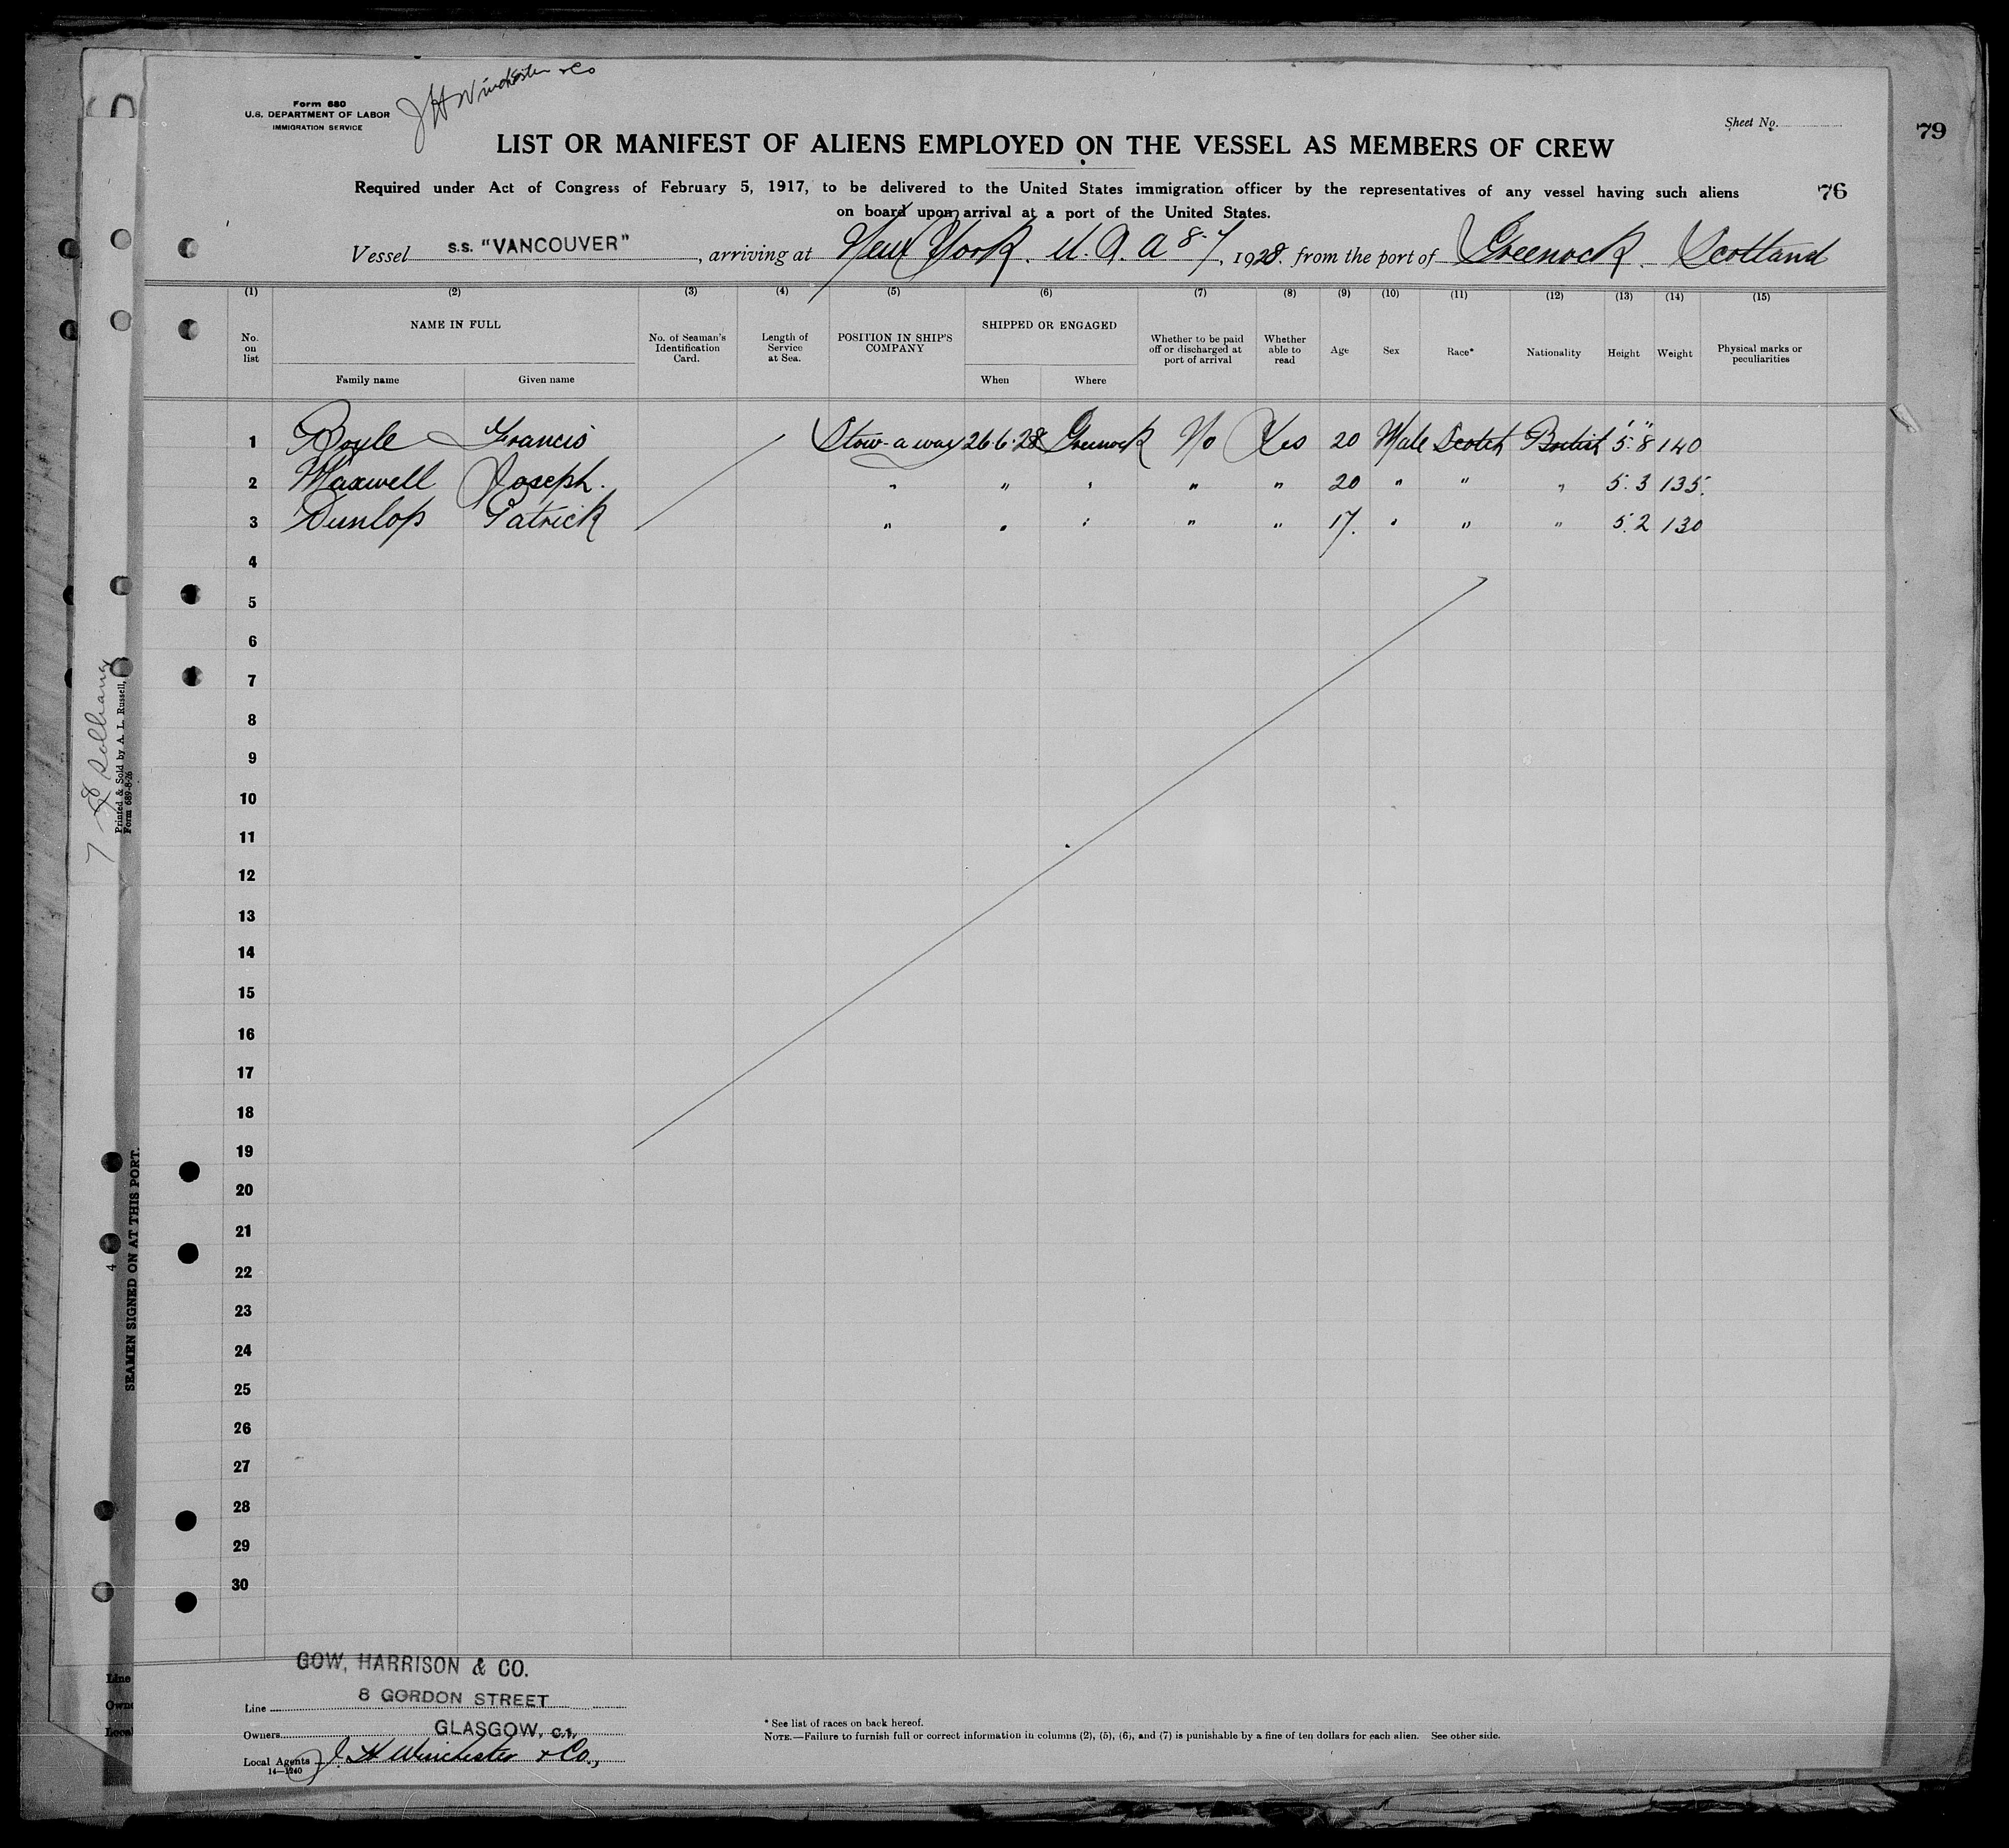 Form 680
U.S. DEPARTMENT OF LABOR
IMMIGRATION SERVICE
J H Winchester & Co
Sheet No.
79
LIST OR MANIFEST OF ALIENS EMPLOYED ON THE VESSEL AS MEMBERS OF CREW
Required under Act of Congress of February 5, 1917, to be delivered to the United States immigration officer by the representatives of any vessel having such aliens
76
on board upon arrival at a port of the United States.
Vessel S.S. "VANCOUVER", arriving at New York. U.S.A 8-7, 1928. from the port of Greenock. Scotland
(1) (2) (3) (4) (5) (6) (7) (8) (9) (10) (11) (12) (13) (14) (15)
No. on list
NAME IN FULL
Family name Given name
No. of Seaman's Identification Card.
Length of Service at Sea.
POSITION IN SHIP'S COMPANY
SHIPPED OR ENGAGED
When Where
Whether to be paid off or discharged at port of arrival
Whether able to read
Age
Sex
Race*
Nationality
Height
Weight
Physical marks or peculiarities
1 Boyle Francis Stow-a-way 26 6.28 Greenock No Yes 20 Male Scotch British 5' 8" 140
2 Maxwell Joseph. " " " " " 20 " " " 5. 3 135.
3 Dunlop Patrick " " " " " 17. " " " 5. 2 130
4
5
6
7
8
9
10
11
12
13
14
15
16
17
18
19
20
21
22
23
24
25
26
27
28
29
30
GOW, HARRISON & CO.
Line 8 GORDON STREET
Owners GLASGOW, C.1.
Local Agents J. H Winchester & Co.,
14—1240
* See list of races on back hereof.
NOTE.—Failure to furnish full or correct information in columns (2), (5), (6), and (7) is punishable by a fine of ten dollars for each alien. See other side.
Printed & Sold by A. L. Russell,
Form 689-8-26
SEAMEN SIGNED ON AT THIS PORT.
4
Line
Own
Local